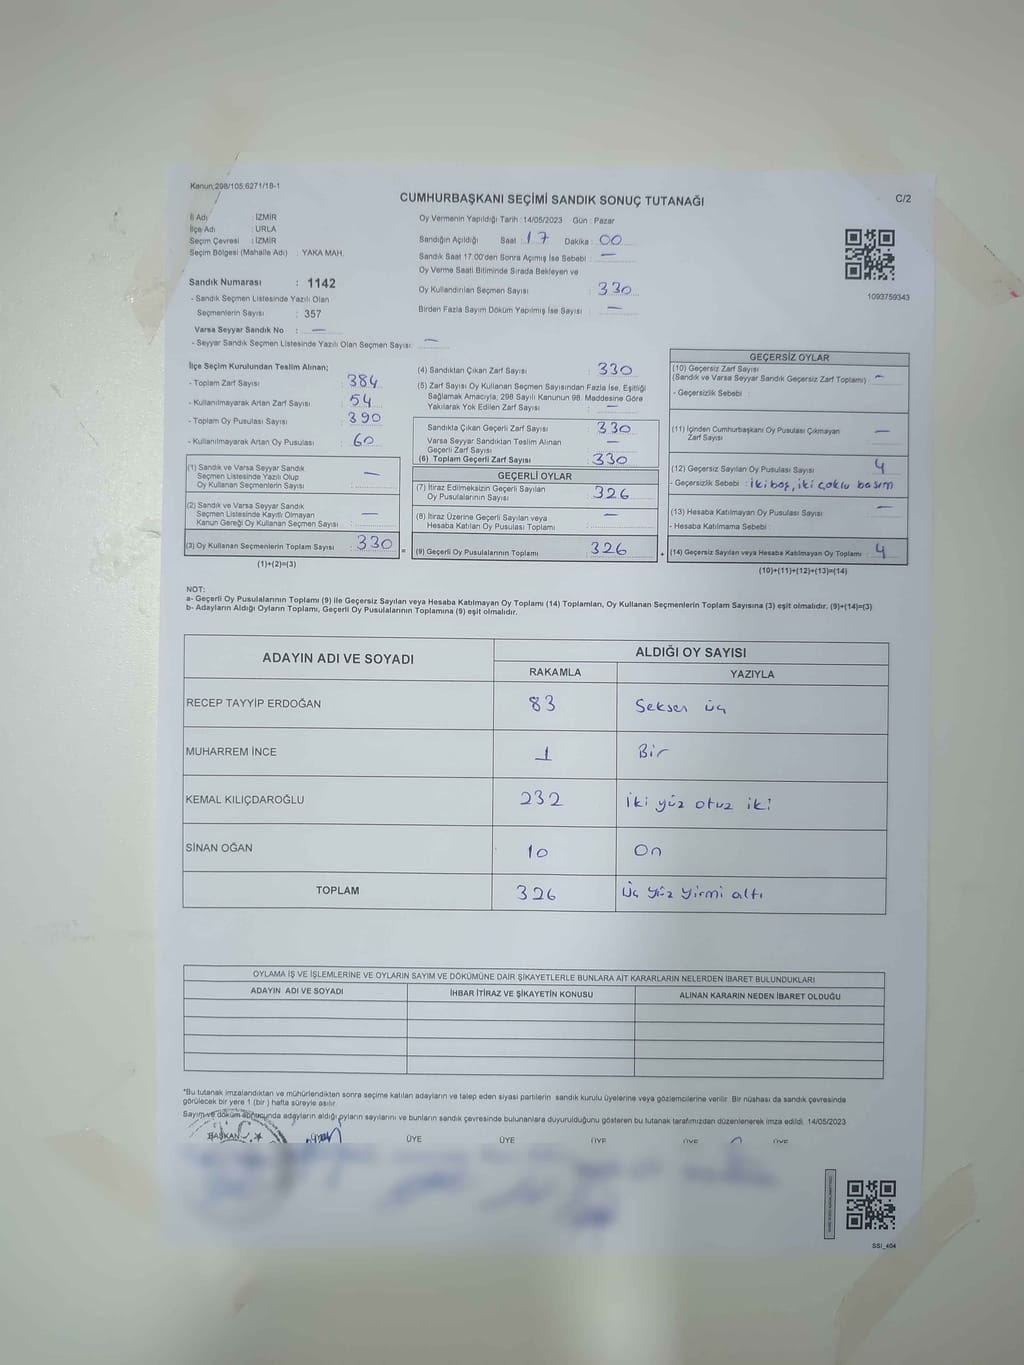 Kanun:298/105;6271/18-1
CUMHURBAŞKANI SEÇİMİ SANDIK SONUÇ TUTANAĞI
C/2
İl Adı : İZMİR
İlçe Adı : URLA
Seçim Çevresi : İZMİR
Seçim Bölgesi (Mahalle Adı) : YAKA MAH.
Sandık Numarası : 1142
- Sandık Seçmen Listesinde Yazılı Olan
Seçmenlerin Sayısı : 357
Varsa Seyyar Sandık No : —
- Seyyar Sandık Seçmen Listesinde Yazılı Olan Seçmen Sayısı: —
Oy Vermenin Yapıldığı Tarih : 14/05/2023 Gün : Pazar
Sandığın Açıldığı Saat : 17 Dakika : 00
Sandık Saat 17:00'den Sonra Açımış İse Sebebi : —
Oy Verme Saati Bitiminde Sırada Bekleyen ve
Oy Kullandırılan Seçmen Sayısı : 330
Birden Fazla Sayım Döküm Yapılmış İse Sayısı : —
1093759343
İlçe Seçim Kurulundan Teslim Alınan;
- Toplam Zarf Sayısı : 384
- Kullanılmayarak Artan Zarf Sayısı : 54
- Toplam Oy Pusulası Sayısı : 390
- Kullanılmayarak Artan Oy Pusulası : 60
(1) Sandık ve Varsa Seyyar Sandık
Seçmen Listesinde Yazılı Olup
Oy Kullanan Seçmenlerin Sayısı : —
(2) Sandık ve Varsa Seyyar Sandık
Seçmen Listesinde Kayıtlı Olmayan
Kanun Gereği Oy Kullanan Seçmen Sayısı : —
(3) Oy Kullanan Seçmenlerin Toplam Sayısı : 330
(1)+(2)=(3)
=
(4) Sandıktan Çıkan Zarf Sayısı : 330
(5) Zarf Sayısı Oy Kullanan Seçmen Sayısından Fazla İse, Eşitliği
Sağlamak Amacıyla; 298 Sayılı Kanunun 98. Maddesine Göre
Yakılarak Yok Edilen Zarf Sayısı : —
Sandıkta Çıkan Geçerli Zarf Sayısı : 330
Varsa Seyyar Sandıktan Teslim Alınan
Geçerli Zarf Sayısı : —
(6) Toplam Geçerli Zarf Sayısı : 330
GEÇERLİ OYLAR
(7) İtiraz Edilmeksizin Geçerli Sayılan
Oy Pusulalarının Sayısı : 326
(8) İtiraz Üzerine Geçerli Sayılan veya
Hesaba Katılan Oy Pusulası Toplamı : —
(9) Geçerli Oy Pusulalarının Toplamı : 326
+
GEÇERSİZ OYLAR
(10) Geçersiz Zarf Sayısı
(Sandık ve Varsa Seyyar Sandık Geçersiz Zarf Toplamı) : —
- Geçersizlik Sebebi :
(11) İçinden Cumhurbaşkanı Oy Pusulası Çıkmayan
Zarf Sayısı : —
(12) Geçersiz Sayılan Oy Pusulası Sayısı : 4
- Geçersizlik Sebebi : iki boş, iki çoklu basım
(13) Hesaba Katılmayan Oy Pusulası Sayısı : —
- Hesaba Katılmama Sebebi :
(14) Geçersiz Sayılan veya Hesaba Katılmayan Oy Toplamı : 4
(10)+(11)+(12)+(13)=(14)
NOT:
a- Geçerli Oy Pusulalarının Toplamı (9) ile Geçersiz Sayılan veya Hesaba Katılmayan Oy Toplamı (14) Toplamları, Oy Kullanan Seçmenlerin Toplam Sayısına (3) eşit olmalıdır. (9)+(14)=(3)
b- Adayların Aldığı Oyların Toplamı, Geçerli Oy Pusulalarının Toplamına (9) eşit olmalıdır.
ADAYIN ADI VE SOYADI
ALDIĞI OY SAYISI
RAKAMLA YAZIYLA
RECEP TAYYİP ERDOĞAN 83 Seksen üç
MUHARREM İNCE 1 Bir
KEMAL KILIÇDAROĞLU 232 iki yüz otuz iki
SİNAN OĞAN 10 On
TOPLAM 326 Üç yüz yirmi altı
OYLAMA İŞ VE İŞLEMLERİNE VE OYLARIN SAYIM VE DÖKÜMÜNE DAİR ŞİKAYETLERLE BUNLARA AİT KARARLARIN NELERDEN İBARET BULUNDUKLARI
ADAYIN ADI VE SOYADI İHBAR İTİRAZ VE ŞİKAYETİN KONUSU ALINAN KARARIN NEDEN İBARET OLDUĞU
*Bu tutanak imzalandıktan ve mühürlendikten sonra seçime katılan adayların ve talep eden siyasi partilerin sandık kurulu üyelerine veya gözlemcilerine verilir. Bir nüshası da sandık çevresinde
görülecek bir yere 1 (bir ) hafta süreyle asılır.
Sayım ve döküm sonucunda adayların aldığı oyların sayılarını ve bunların sandık çevresinde bulunanlara duyurulduğunu gösteren bu tutanak tarafımızdan düzenlenerek imza edildi. 14/05/2023
BAŞKAN ÜYE ÜYE ÜYE ÜYE ÜYE
SSİ_404